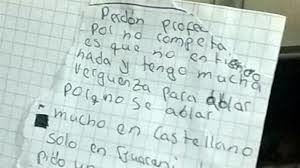 Perdon profe
por no competa
es que no entiendo
nada y tengo mucha
verguenza para ablar
porque no se ablar
mucho en castellano
solo en guarani
Pido